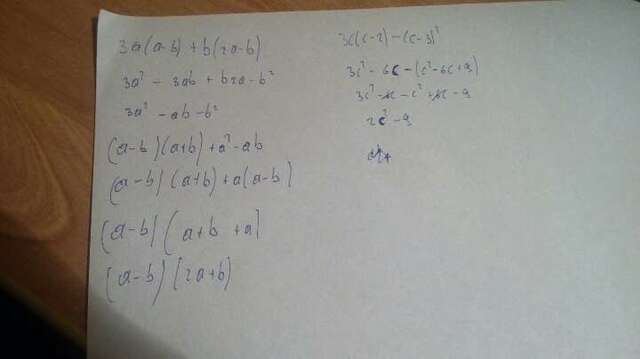 3a(a-b)+b(2a-b)
3a²-3ab+b2a-b²
3a²-ab-b²
(a-b)(a+b)+a²-ab
(a-b)(a+b)+a(a-b)
(a-b)(a+b+a)
(a-b)(2a+b)
3c(c-2)-(c-3)²
3c²-6c-(c²-6c+9)
3c²-6c-c²+6c-9
2c²-9